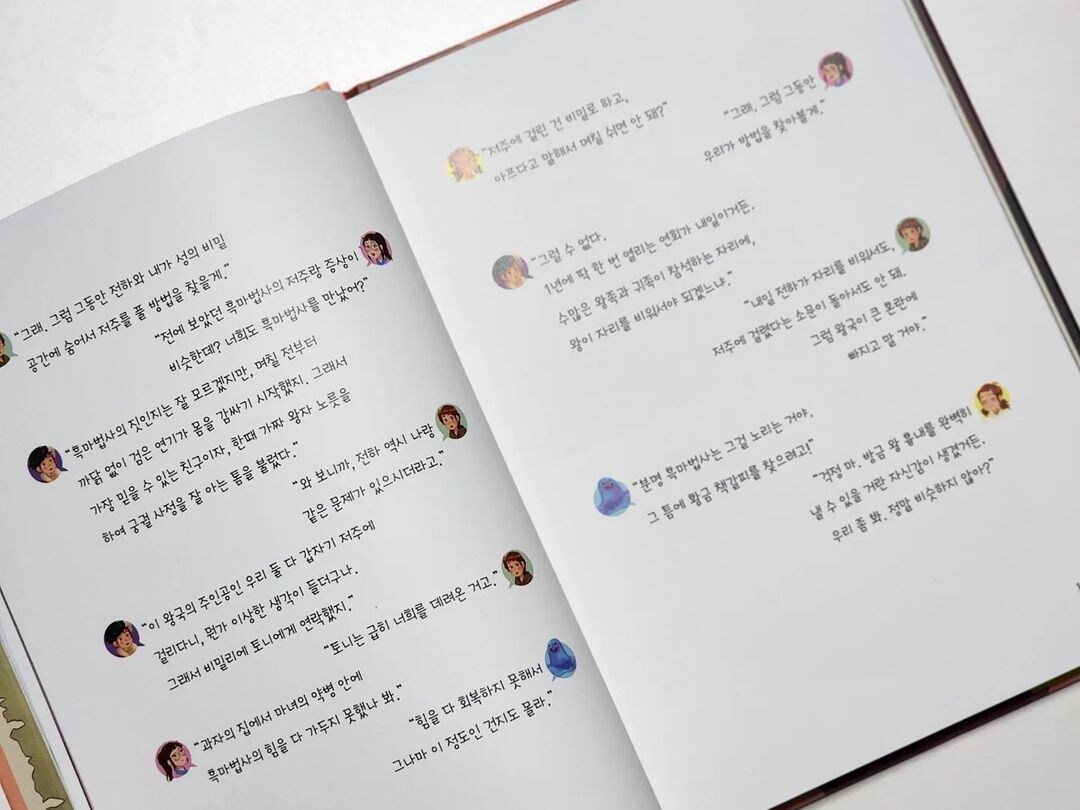 "그래. 그럼 그동안 전하와 내가 성의 비밀
공간에 숨어서 저주를 풀 방법을 찾을게."
"전에 보았던 흑마법사의 저주랑 증상이
비슷한데? 너희도 흑마법사를 만났어?"
"흑마법사의 짓인지는 잘 모르겠지만, 며칠 전부터
까닭 없이 검은 연기가 몸을 감싸기 시작했지. 그래서
가장 믿을 수 있는 친구이자, 한때 가짜 왕자 노릇을
하여 궁궐 사정을 잘 아는 톰을 불렀다."
"와 보니까, 전하 역시 나랑
같은 문제가 있으시더라고."
"이 왕국의 주인공인 우리 둘 다 갑자기 저주에
걸리다니, 뭔가 이상한 생각이 들더구나.
그래서 비밀리에 토니에게 연락했지."
"토니는 급히 너희를 데려온 거고."
"과자의 집에서 마녀의 약병 안에
흑마법사의 힘을 다 가두지 못했나 봐."
"힘을 다 회복하지 못해서
그나마 이 정도인 건지도 몰라."
"저주에 걸린 건 비밀로 하고,
아프다고 말해서 며칠 쉬면 안 돼?"
"그래. 그럼 그동안
우리가 방법을 찾아볼게."
"그럴 수 없다.
1년에 딱 한 번 열리는 연회가 내일이거든.
수많은 왕족과 귀족이 참석하는 자리에,
왕이 자리를 비워서야 되겠느냐."
"내일 전하가 자리를 비워서도,
저주에 걸렸다는 소문이 돌아서도 안 돼.
그럼 왕국이 큰 혼란에
빠지고 말 거야."
"분명 흑마법사는 그걸 노리는 거야.
그 틈에 황금 책갈피를 찾으려고!"
"걱정 마. 방금 왕 흉내를 완벽히
낼 수 있을 거란 자신감이 생겼거든.
우리 좀 봐. 정말 비슷하지 않아?"